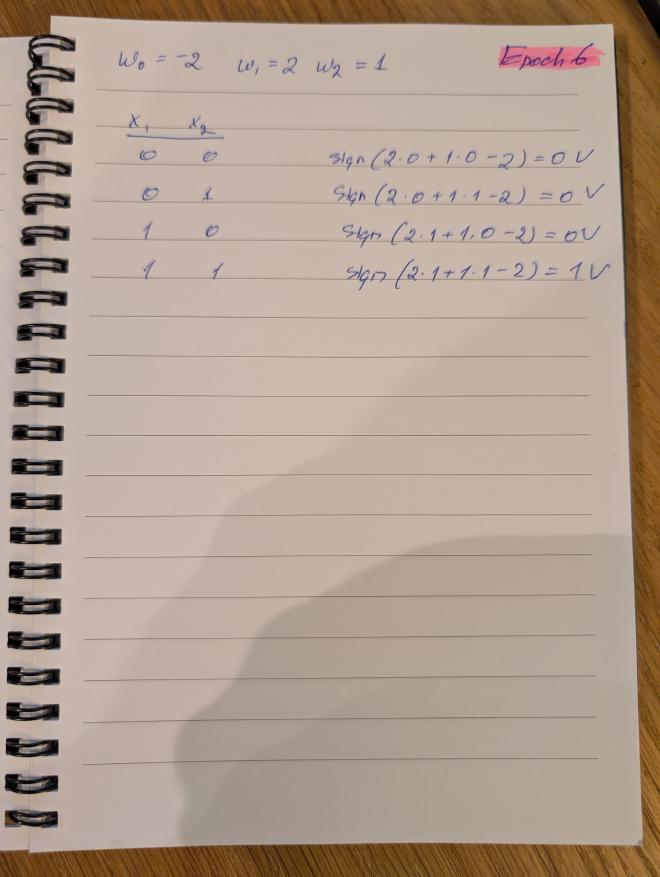 w₀ = -2 w₁ = 2 w₂ = 1 Epoch 6
x₁ x₂
0 0 sign (2·0 + 1·0 - 2) = 0 V
0 1 sign (2·0 + 1·1 - 2) = 0 V
1 0 sign (2·1 + 1·0 - 2) = 0 V
1 1 sign (2·1 + 1·1 - 2) = 1 V